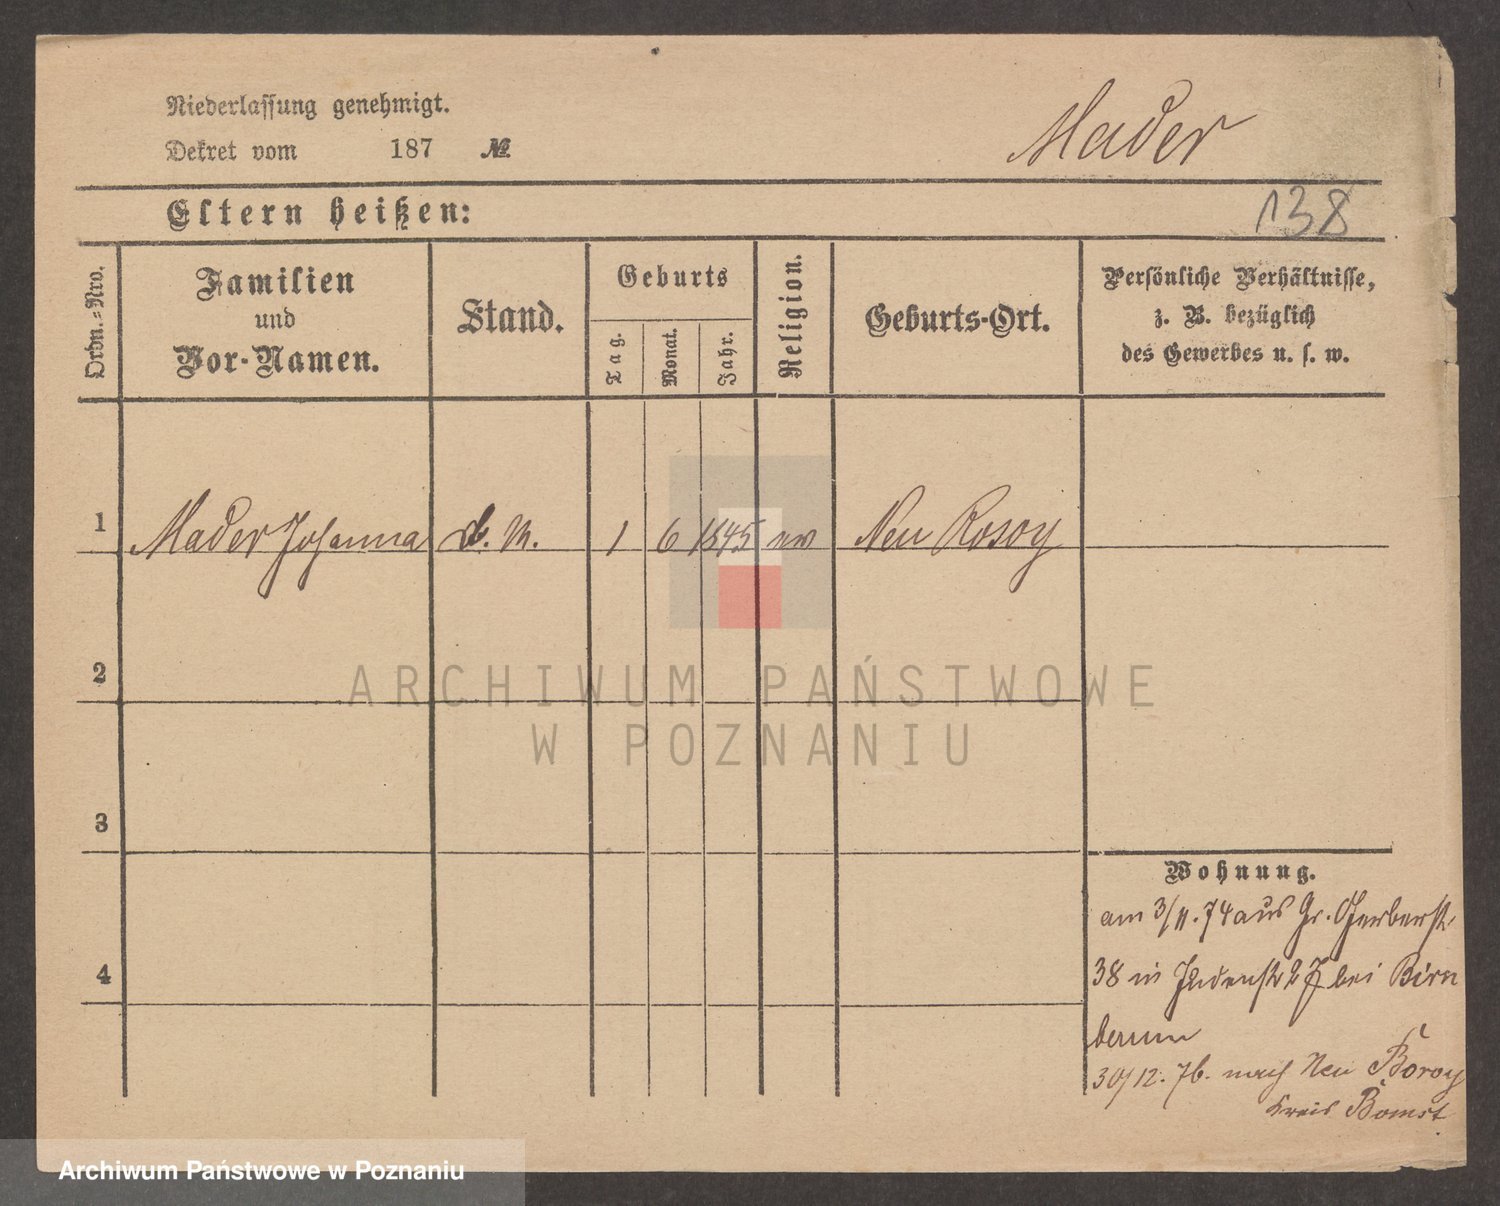 Niederlassung genehmigt.
Dekret vom 187 №
Mader
Eltern heißen:
138
Ordn.-Nro.
Familien
und
Vor-Namen.
Stand.
Geburts
Tag.
Monat.
Jahr.
Religion.
Geburts-Ort.
Persönliche Verhältnisse,
z. B. bezüglich
des Gewerbes u. s. w.
1 Mader Johanna d. M. 1 6 1845 ev Neu Rosoy
2
3
4
Wohnung.
am 3/11.74 aus Gr. Gerberstr
38 in Judenstr 27 bei Birn
baum
30/12. 76. nach Neu Boroy
Kreis Bomst
ARCHIWUM PAŃSTWOWE
W POZNANIU
Archiwum Państwowe w Poznaniu